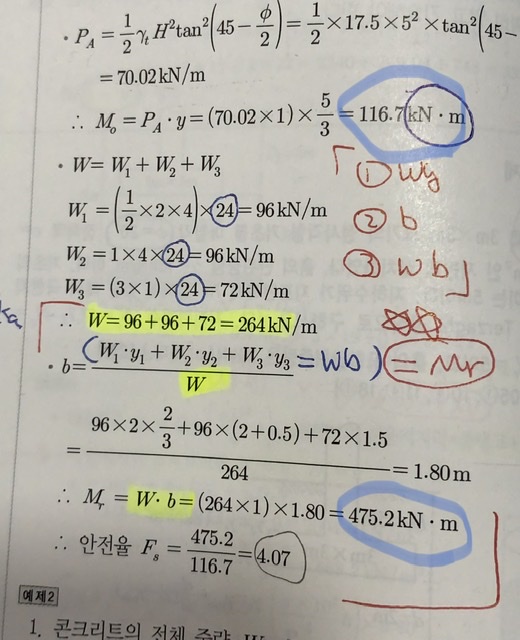 · P_A = 1/2 γ_t H² tan²(45 − ϕ/2) = 1/2 × 17.5 × 5² × tan²(45 −
= 70.02 kN/m
∴ M_o = P_A · y = (70.02 × 1) × 5/3 = 116.7 kN · m
· W = W₁ + W₂ + W₃
W₁ = (1/2 × 2 × 4) × 24 = 96 kN/m
① Wy
② b
W₂ = 1 × 4 × 24 = 96 kN/m
③ wb
W₃ = (3 × 1) × 24 = 72 kN/m
∴ W = 96 + 96 + 72 = 264 kN/m
· b = (W₁ · y₁ + W₂ · y₂ + W₃ · y₃)/W = Wb) = Mr
= (96 × 2 × 2/3 + 96 × (2 + 0.5) + 72 × 1.5)/264 = 1.80 m
∴ M_r = W · b = (264 × 1) × 1.80 = 475.2 kN · m
∴ 안전율 F_s = 475.2/116.7 = 4.07
예제2
1. 콘크리트의 전체 중량